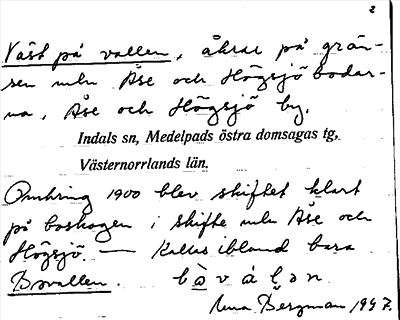 2
Väst på vallen, åkrar på grän-
sen mln Åse och Högsjö bodar-
na, Åse och Högsjö by.
Indals sn, Medelpads östra domsagas tg,
Västernorrlands län.
Omkring 1900 blev skiftet klart
på boskogen i skifte mln Åse och
Högsjö. — Kallas ibland bara
Bovallen.
Bergman 1947.